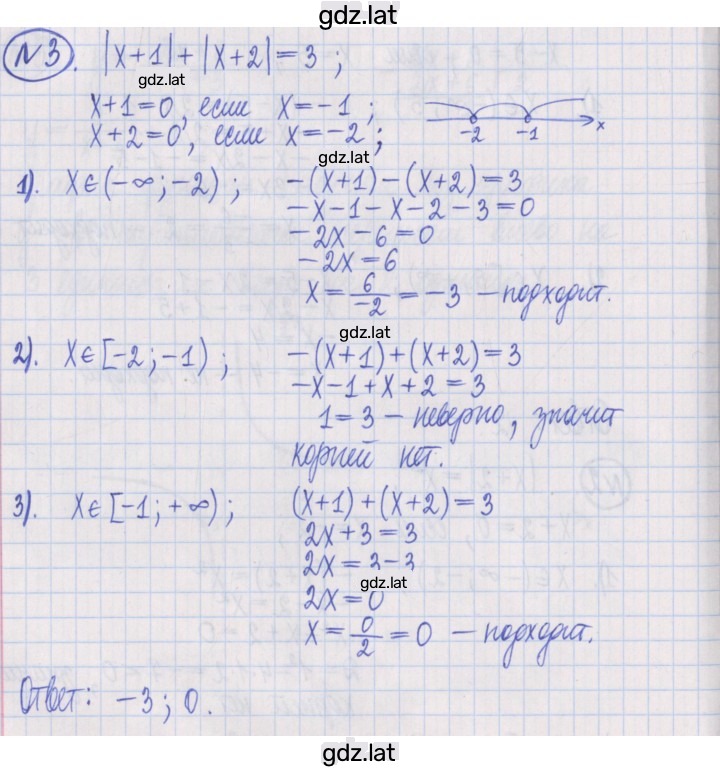 gdz.lat
№3. |x+1|+|x+2|=3;
gdz.lat
x+1=0, если x=-1;
x+2=0, если x=-2;
-2 -1 x
gdz.lat
1). x∈(-∞;-2); -(x+1)-(x+2)=3
-x-1-x-2-3=0
-2x-6=0
-2x=6
x=6/-2=-3 - подходит.
gdz.lat
2). x∈[-2;-1); -(x+1)+(x+2)=3
-x-1+x+2=3
1=3 - неверно, значит
корней нет.
3). x∈[-1;+∞); (x+1)+(x+2)=3
2x+3=3
2x=3-3
gdz.lat
2x=0
x=0/2=0 - подходит.
Ответ: -3; 0.
gdz.lat